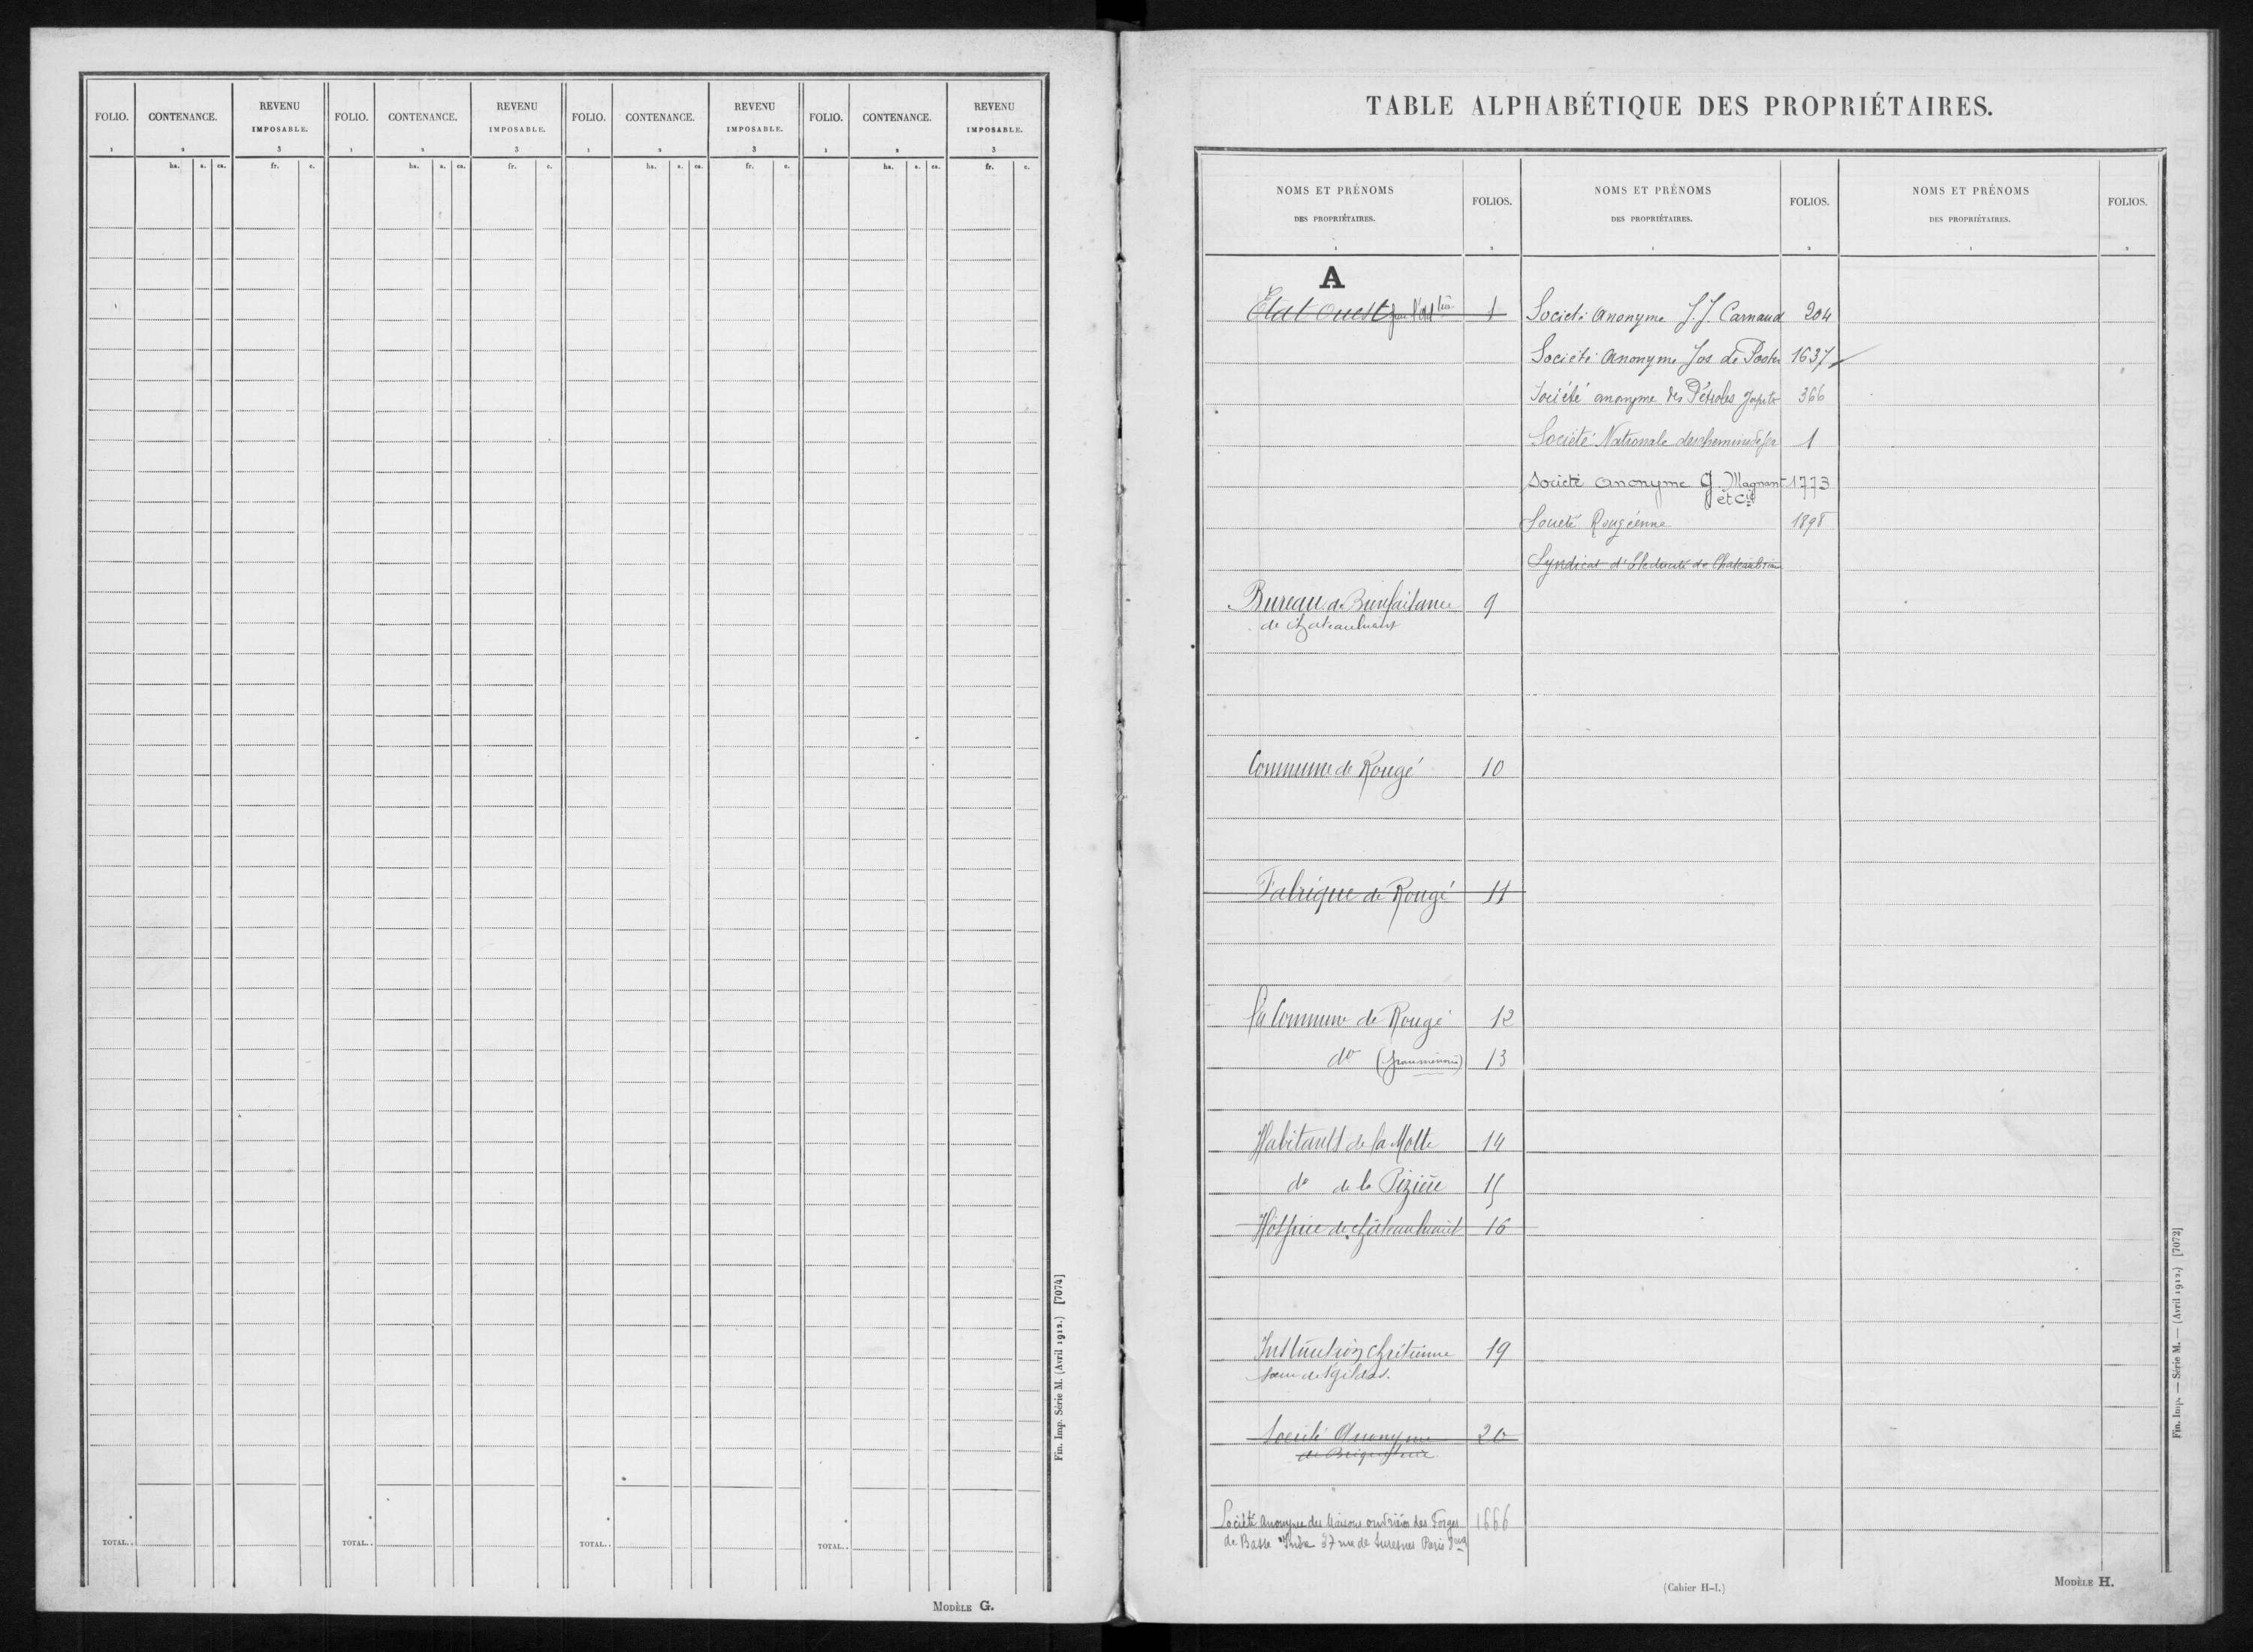 FOLIO. CONTENANCE. REVENU IMPOSABLE. FOLIO. CONTENANCE. REVENU IMPOSABLE. FOLIO. CONTENANCE. REVENU IMPOSABLE. FOLIO. CONTENANCE. REVENU IMPOSABLE.
1 2 3 1 2 3 1 2 3 1 2 3
ha. a. ca. fr. c. ha. a. ca. fr. c. ha. a. ca. fr. c. ha. a. ca. fr. c.
TOTAL.. TOTAL.. TOTAL.. TOTAL..
Fin. Imp. Série M. (Avril 1912.) [7074]
MODÈLE G.
TABLE ALPHABÉTIQUE DES PROPRIÉTAIRES.
NOMS ET PRÉNOMS DES PROPRIÉTAIRES. FOLIOS. NOMS ET PRÉNOMS DES PROPRIÉTAIRES. FOLIOS. NOMS ET PRÉNOMS DES PROPRIÉTAIRES. FOLIOS.
1 2 1 2 1 2
A
Etat Ouest 1
Bureau de Bienfaisance 9
de Chateaubriant
Commune de Rougé 10
Fabrique de Rougé 11
La Commune de Rougé 12
do 13
Habitants de la Motte 14
do de la Pizière 15
Hospice de Châteaubriant 16
Institution Chrétienne 19
sœur de St Gildas.
Société Anonyme 20
Société Anonyme des Maisons ouvrières des Forges 1666
de Basse Indre 37 rue de Suresnes Paris
Société Anonyme J.J. Carnaud 204
Société Anonyme Jos de Poorter 1637
Société anonyme des Pétroles Jupiter 366
Société Nationale des chemins de fer 1
Société Anonyme G. Magnant 1773
et Cie
Société Rougéenne 1898
Syndicat d'Electricité de Chateaubriant
Fin. Imp. — Série M. — (Avril 1912.) [7072]
(Cahier H-1.)
MODÈLE H.